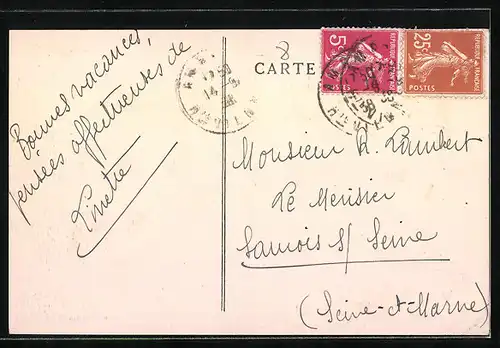 8
CARTE
5c
REPUBLIQUE FRANÇAISE
25c
POSTES
Bonnes vacances,
pensées affectueuses de
Linette
Monsieur H. Lambert
Le Merisier
Samois s/ Seine
(Seine-et-Marne)